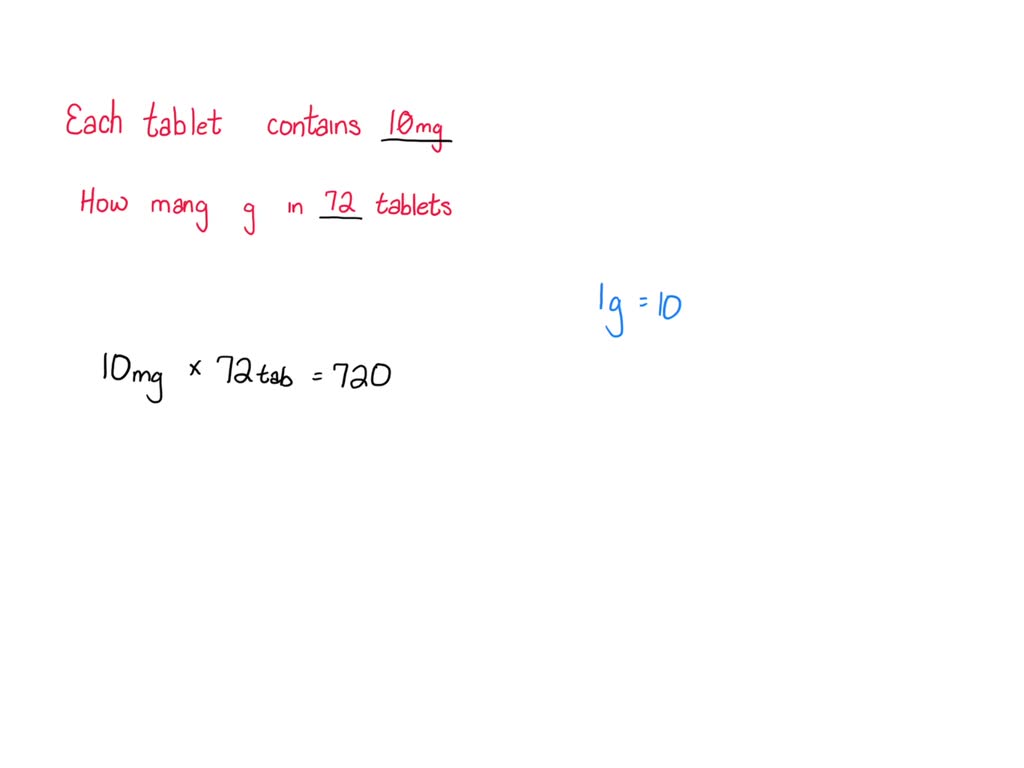 Each tablet contains 10mg
How mang g in 72 tablets
1g = 10
10mg × 72tab = 720